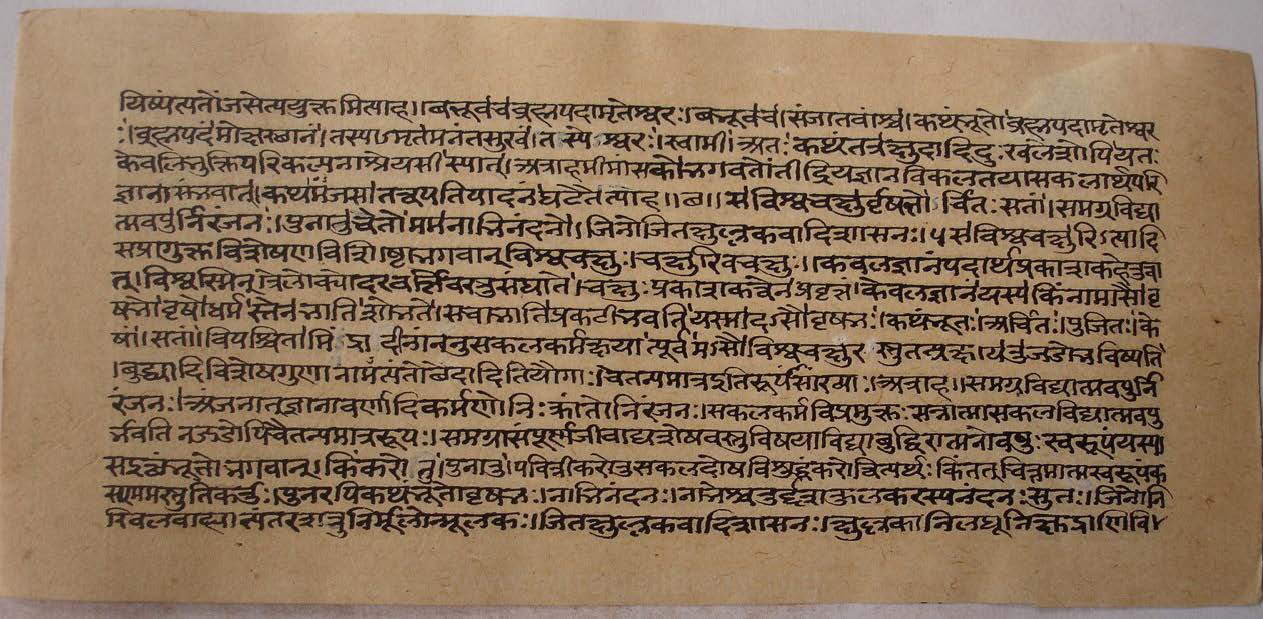 यिष्यंत्यतोंजसेत्ययुक्तमित्याह।।बभूवचब्रह्मपदामृतेश्वरः।बभूवच।संजातवांश्च।कथंभूतो।ब्रह्मपदामृतेश्वर
ः।ब्रह्मपदंमोक्षस्थानं।तस्याऽमृतमनंतसुखं।तस्पेश्वरः।स्वामी।अतः कथंतत्रक्षुदादिदुःखलेशोपियतः
केवलिभुक्तिपरिकल्पनाश्रेयसीस्यात्।अत्राहमीमांसकोभगवतोतींद्रियज्ञानविकलतयासकलार्थपरि
ज्ञानासंभवात्।कथमंजसातत्त्वपतियादनंघटेतेत्याह॥छ॥सविश्वचक्षुर्वृषभोर्चितःसतां।समग्रविद्या
त्मवपुर्निरंजनः।पुनातुचेतोममनाभिनंदनो।जिनोजितक्षुल्लकवादिशासनः।५सविश्वचक्षुरित्यादि
सप्रागुक्तविशेषणविशिष्टोभगवान्विश्वचक्षुः।चक्षुरिवचक्षुः।केवलज्ञानंपदार्थप्रकाशकहेतुत्वा
त्।विश्वस्मिन्त्रैलोक्योदरवर्त्तिवस्तुसंघाते।चक्षुःप्रकाशकत्वेनप्रवृत्तं।केवलज्ञानंयस्य।किंनामासौ।वृ
षभो।वृषोधर्मस्तेनभातिशोभते।सवाभातिप्रकटीभवति।यस्मादऽसौवृषभः।कथंभूतः।अर्चितः।पूजितः।के
षां।सतां।विपश्चितामिंद्रादीनांननुसकलकर्मक्षयात्पूर्वमऽसौविश्वचक्षुरस्तुतत्प्रक्षयेतुजडोभविष्यति
।बुद्ध्यादिविशेषगुणानामत्यंतोछेदादितियौगाः।चैतन्यमात्ररूप इति सांख्याः।अत्राह।।समग्रविद्यात्मवपुर्नि
रंजनः।अंजनात्ज्ञानावर्णादिकर्मणोनिःक्रांतोनिरंजनः।सकलकर्मविप्रमुक्तःसन्नात्मासकलविद्यात्मवपु
र्भवतिनजडोपिचैतन्यमात्ररूपः।समग्रासंपूर्णाजीवाद्यशेषवस्तुविषयाविद्याबुद्धिरात्मनोवपुःस्वरूपंयस्या
सइत्थंभूतोभगवान्।किंकरोतु।पुनातु।पवित्रीकरोतुसकलदोषविशुद्धंकरोत्वित्यर्थः।किंतत्चित्तमात्मस्वरूपंक
स्यममस्तुतिकर्तुः।पुनरपिकथंभूतोवृषभः।नाभिनंदनः।नाभेश्चतुर्दशकुलकरस्यनंदनःसुतः।जिनोनि
खिलवाह्याभ्यंतरशत्रुनिर्मूलोन्मूलकः।जितक्षुल्लकवादिशासनः।क्षुल्लकानिलघूनिक्षुद्राणिवि